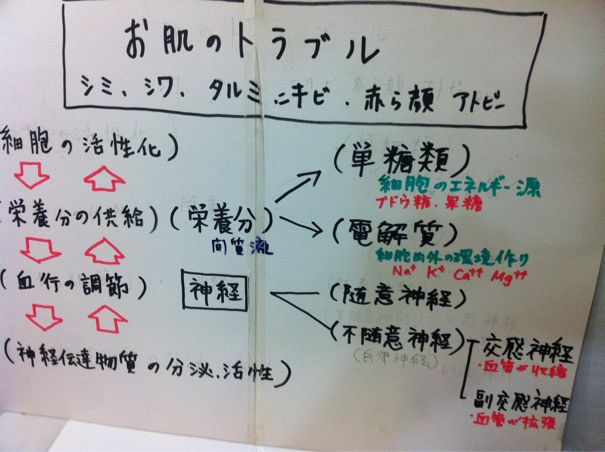 お肌のトラブル
シミ、シワ、タルミ、ニキビ、赤ら顔 アトピー
細胞の活性化)
(栄養分の供給)
(血行の調節)
(神経伝達物質の分泌、活性)
(栄養分)
間質液
神経
(単糖類)
細胞のエネルギー源
ブドウ糖、果糖
(電解質)
細胞内外の環境作り
Na⁺ K⁺ Ca⁺⁺ Mg⁺⁺
(随意神経)
(不随意神経)
(自律神経)
交感神経
・血管が収縮
副交感神経
・血管が拡張